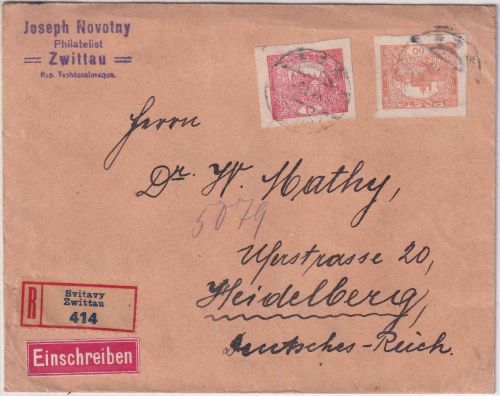 Joseph Novotny
Philatelist
Zwittau
Rep. Tschécoslovaque.
Herrn
Dr. W. Mathy,
5079
Uferstrasse 20,
Heidelberg,
Deutsches-Reich.
R
Svitavy
Zwittau
414
Einschreiben